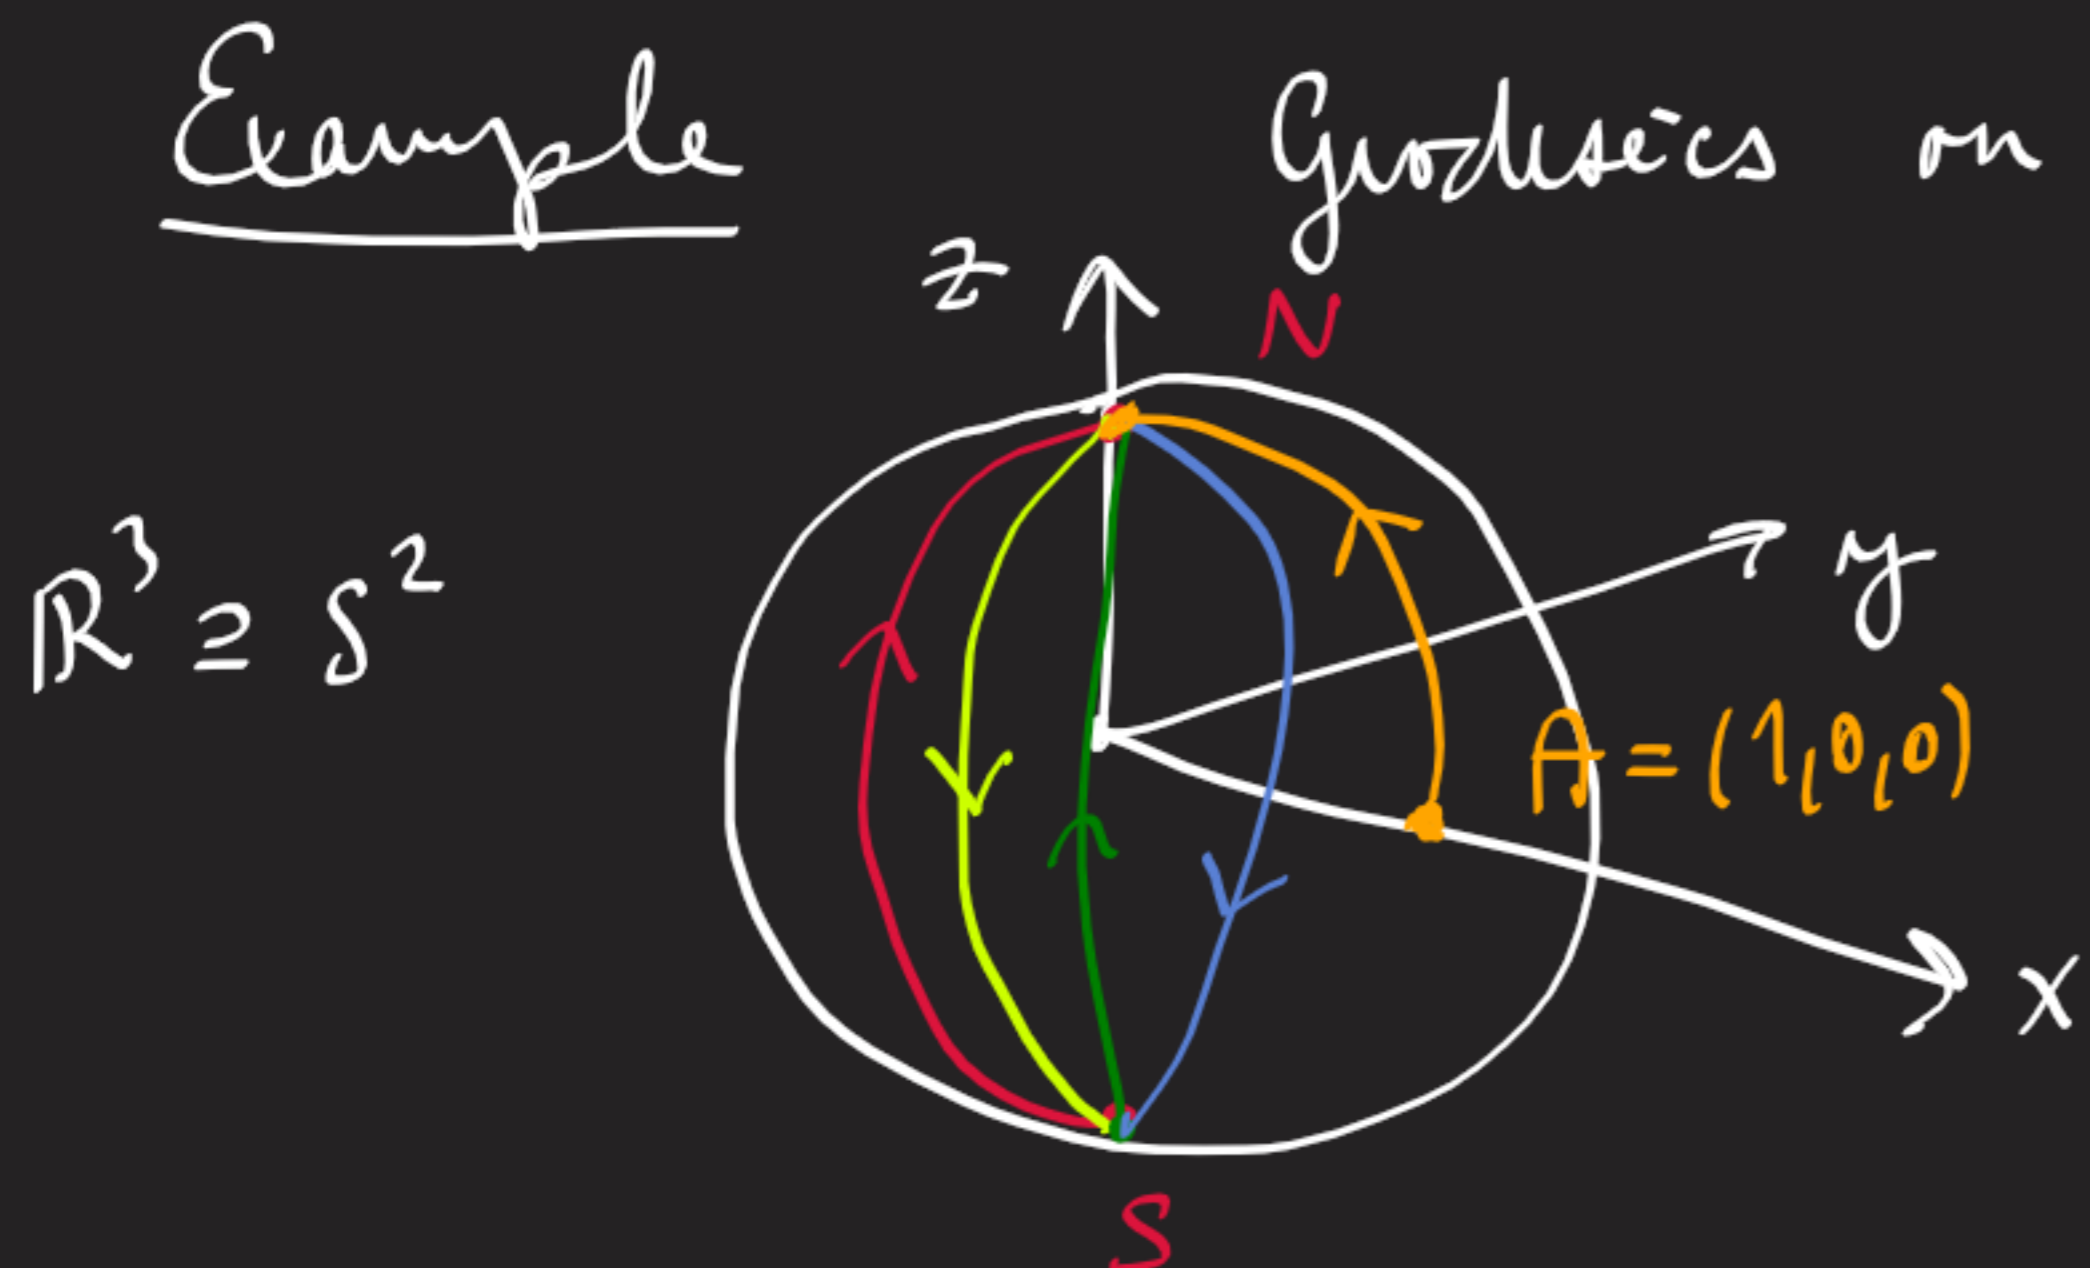 Example Geodesics on
z N
y
ℝ³ ⊇ S²
A = (1,0,0)
x
S